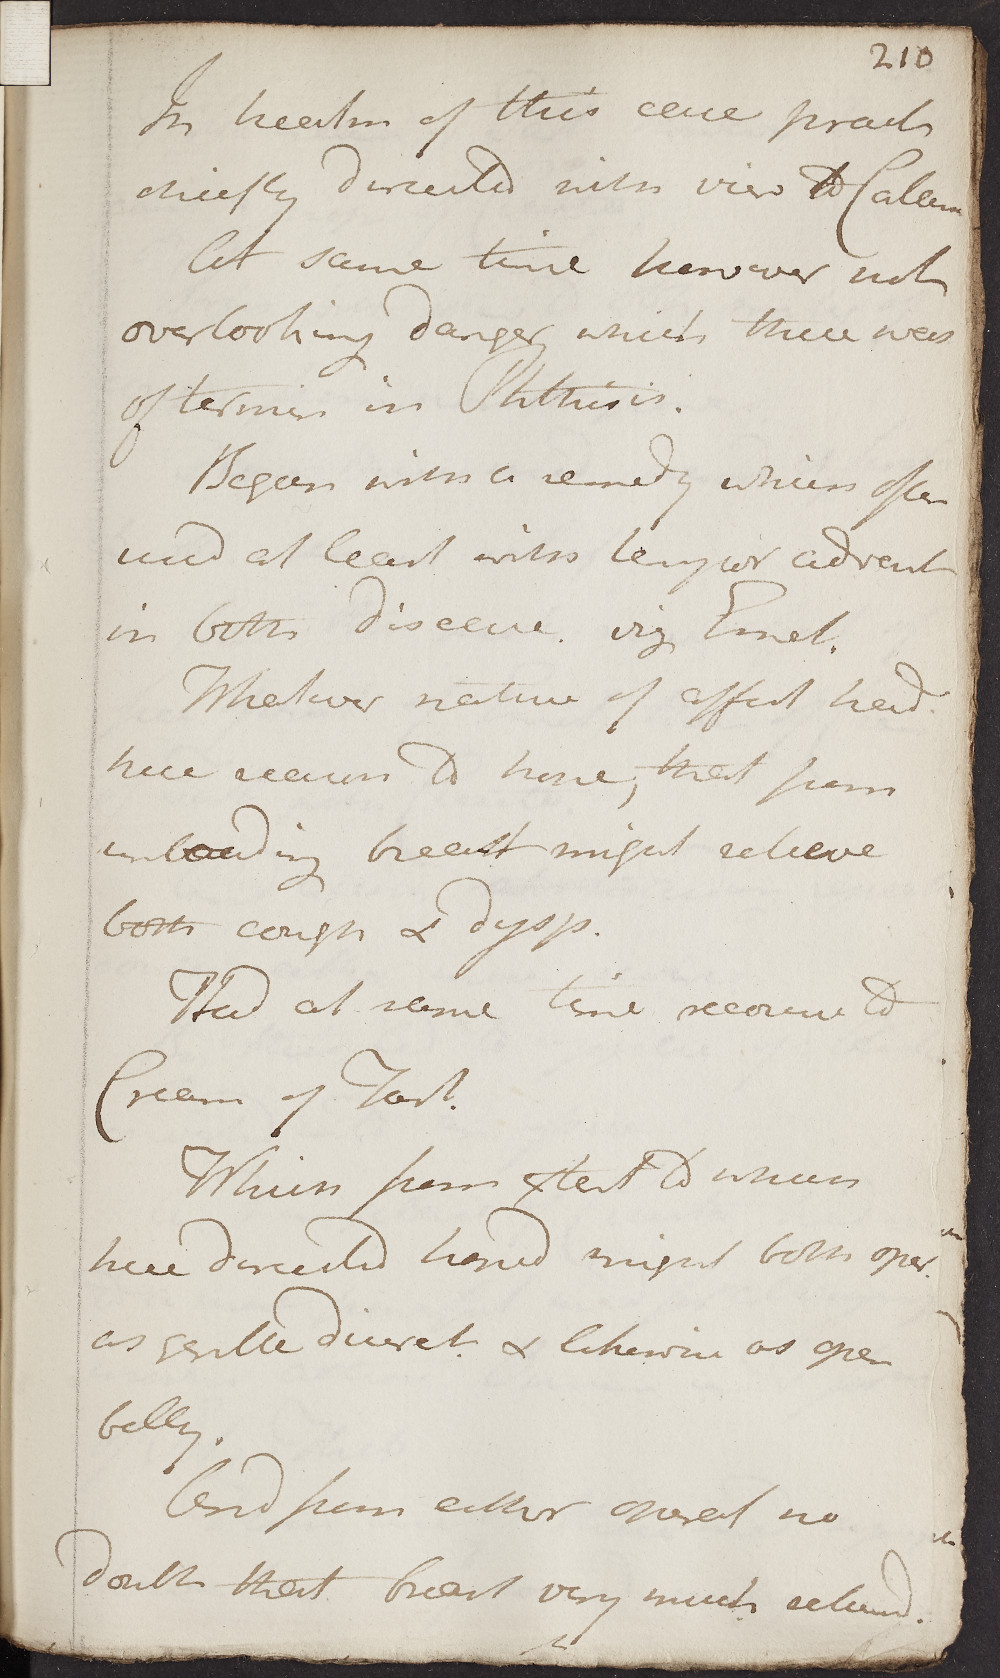 210
In treatm of this case pract
chiefly directed with view to Catarrh
At same time however not
overlooking danger which there was
of termin in Phthisis.
Began with a remedy which often
used at least with tempor advant
in both disease. viz Emet.
Whatever nature of affect had
here reason to hope, that from
unloading breast might relieve
both cough & dysp.
Had at same time recourse to
Cream of Tart.
Which from extent to which
here directed hoped might both oper.
as gentle diuret. & likewise as open
belly.
And from either operat no
doubt that breast very much relieved.